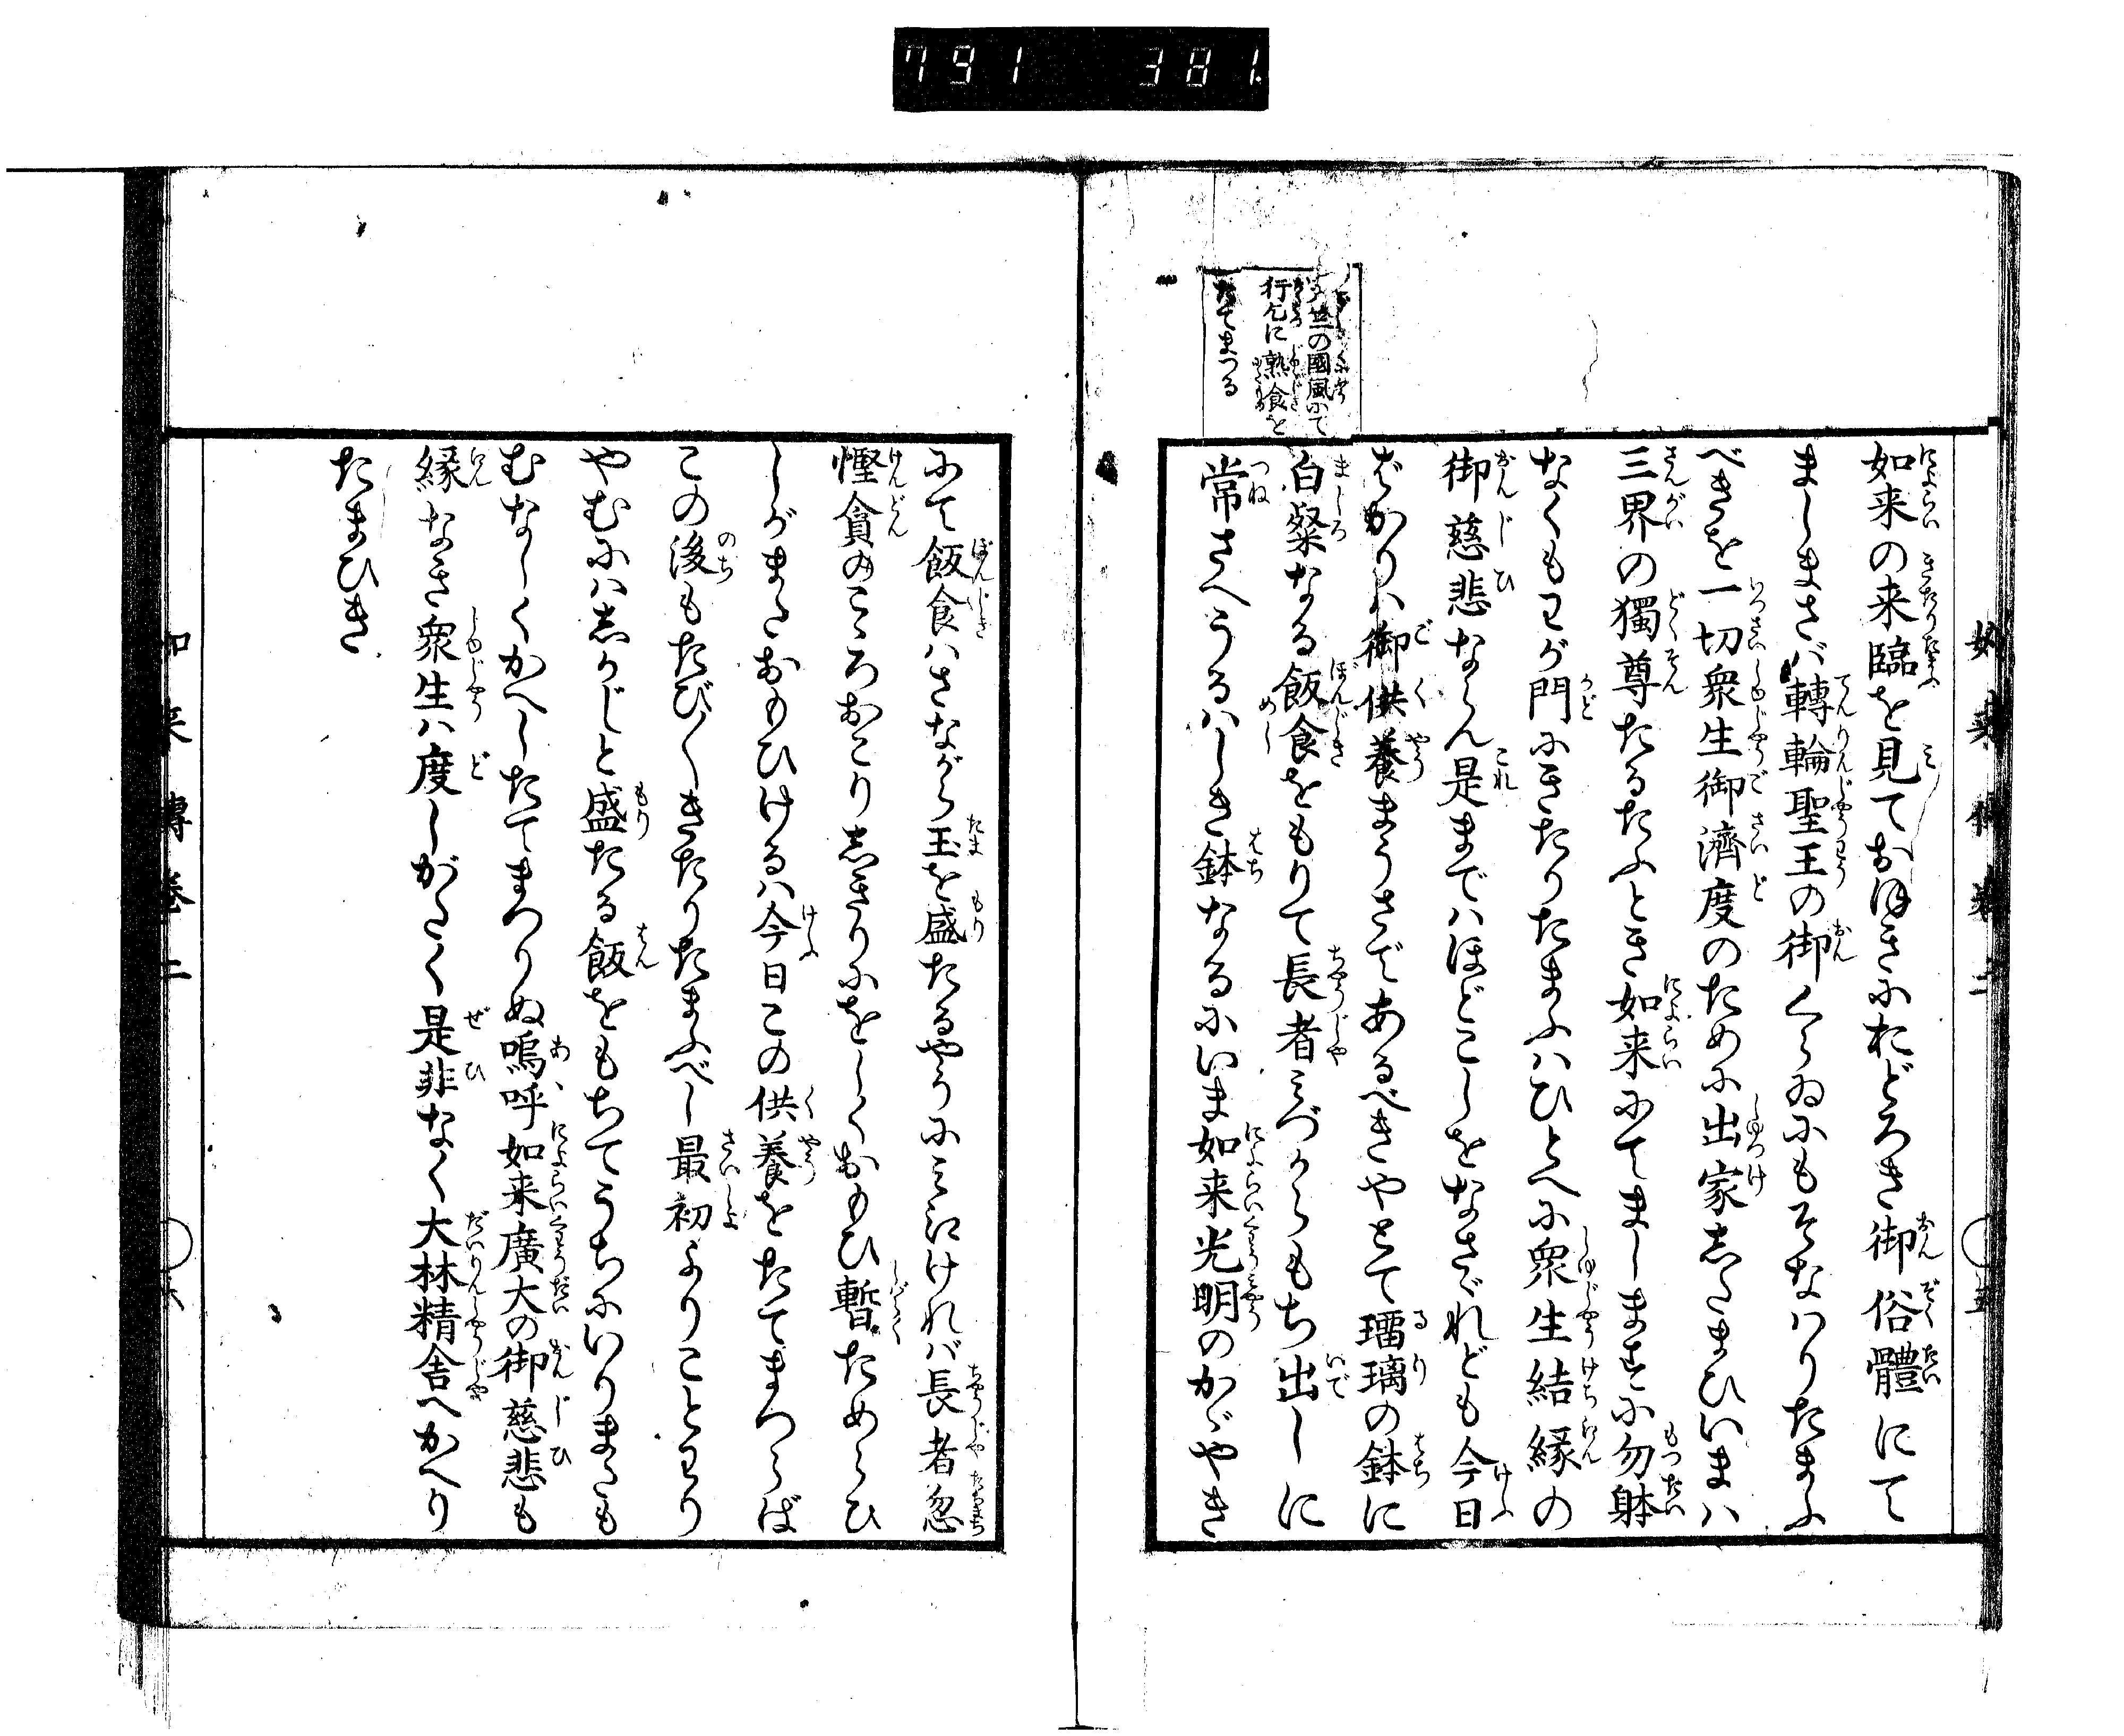 791 381.
如来傳巻二
五
天竺の國風にて
行乞に熟食を
たてまつる
如来の来臨を見ておほきにおどろき御俗體にて
ましまさバ轉輪聖王の御くらゐにもそなハりたまふ
べきを一切衆生御濟度のために出家したまひいまハ
三界の獨尊たるたふとき如来にてましますに勿躰
なくもわが門にきたりたまふハひとへに衆生結縁の
御慈悲ならん是まではほどこしをなさゞれども今日
ばかりハ御供養まうさであるべきやとて瑠璃の鉢に
白粲なる飯食をもりて長者みづからもち出しに
常さへうるハしき鉢なるにいま如来光明のかゞやき
にて飯食ハさながら玉を盛たるやうにみえけれバ長者忽
慳貪のこゝろおこりしきりにをしくおもひ暫ためらひ
しがまたおもひけるハ今日この供養をたてまつらば
この後もたび〳〵きたりたまふべし最初よりことわり
やむにハしかじと盛たる飯をもちてうちにいりまたも
むなしくかへしたてまつりぬ嗚呼如来廣大の御慈悲も
縁なき衆生ハ度しがたく是非なく大林精舎へかへり
たまひき
如来傳巻二
六